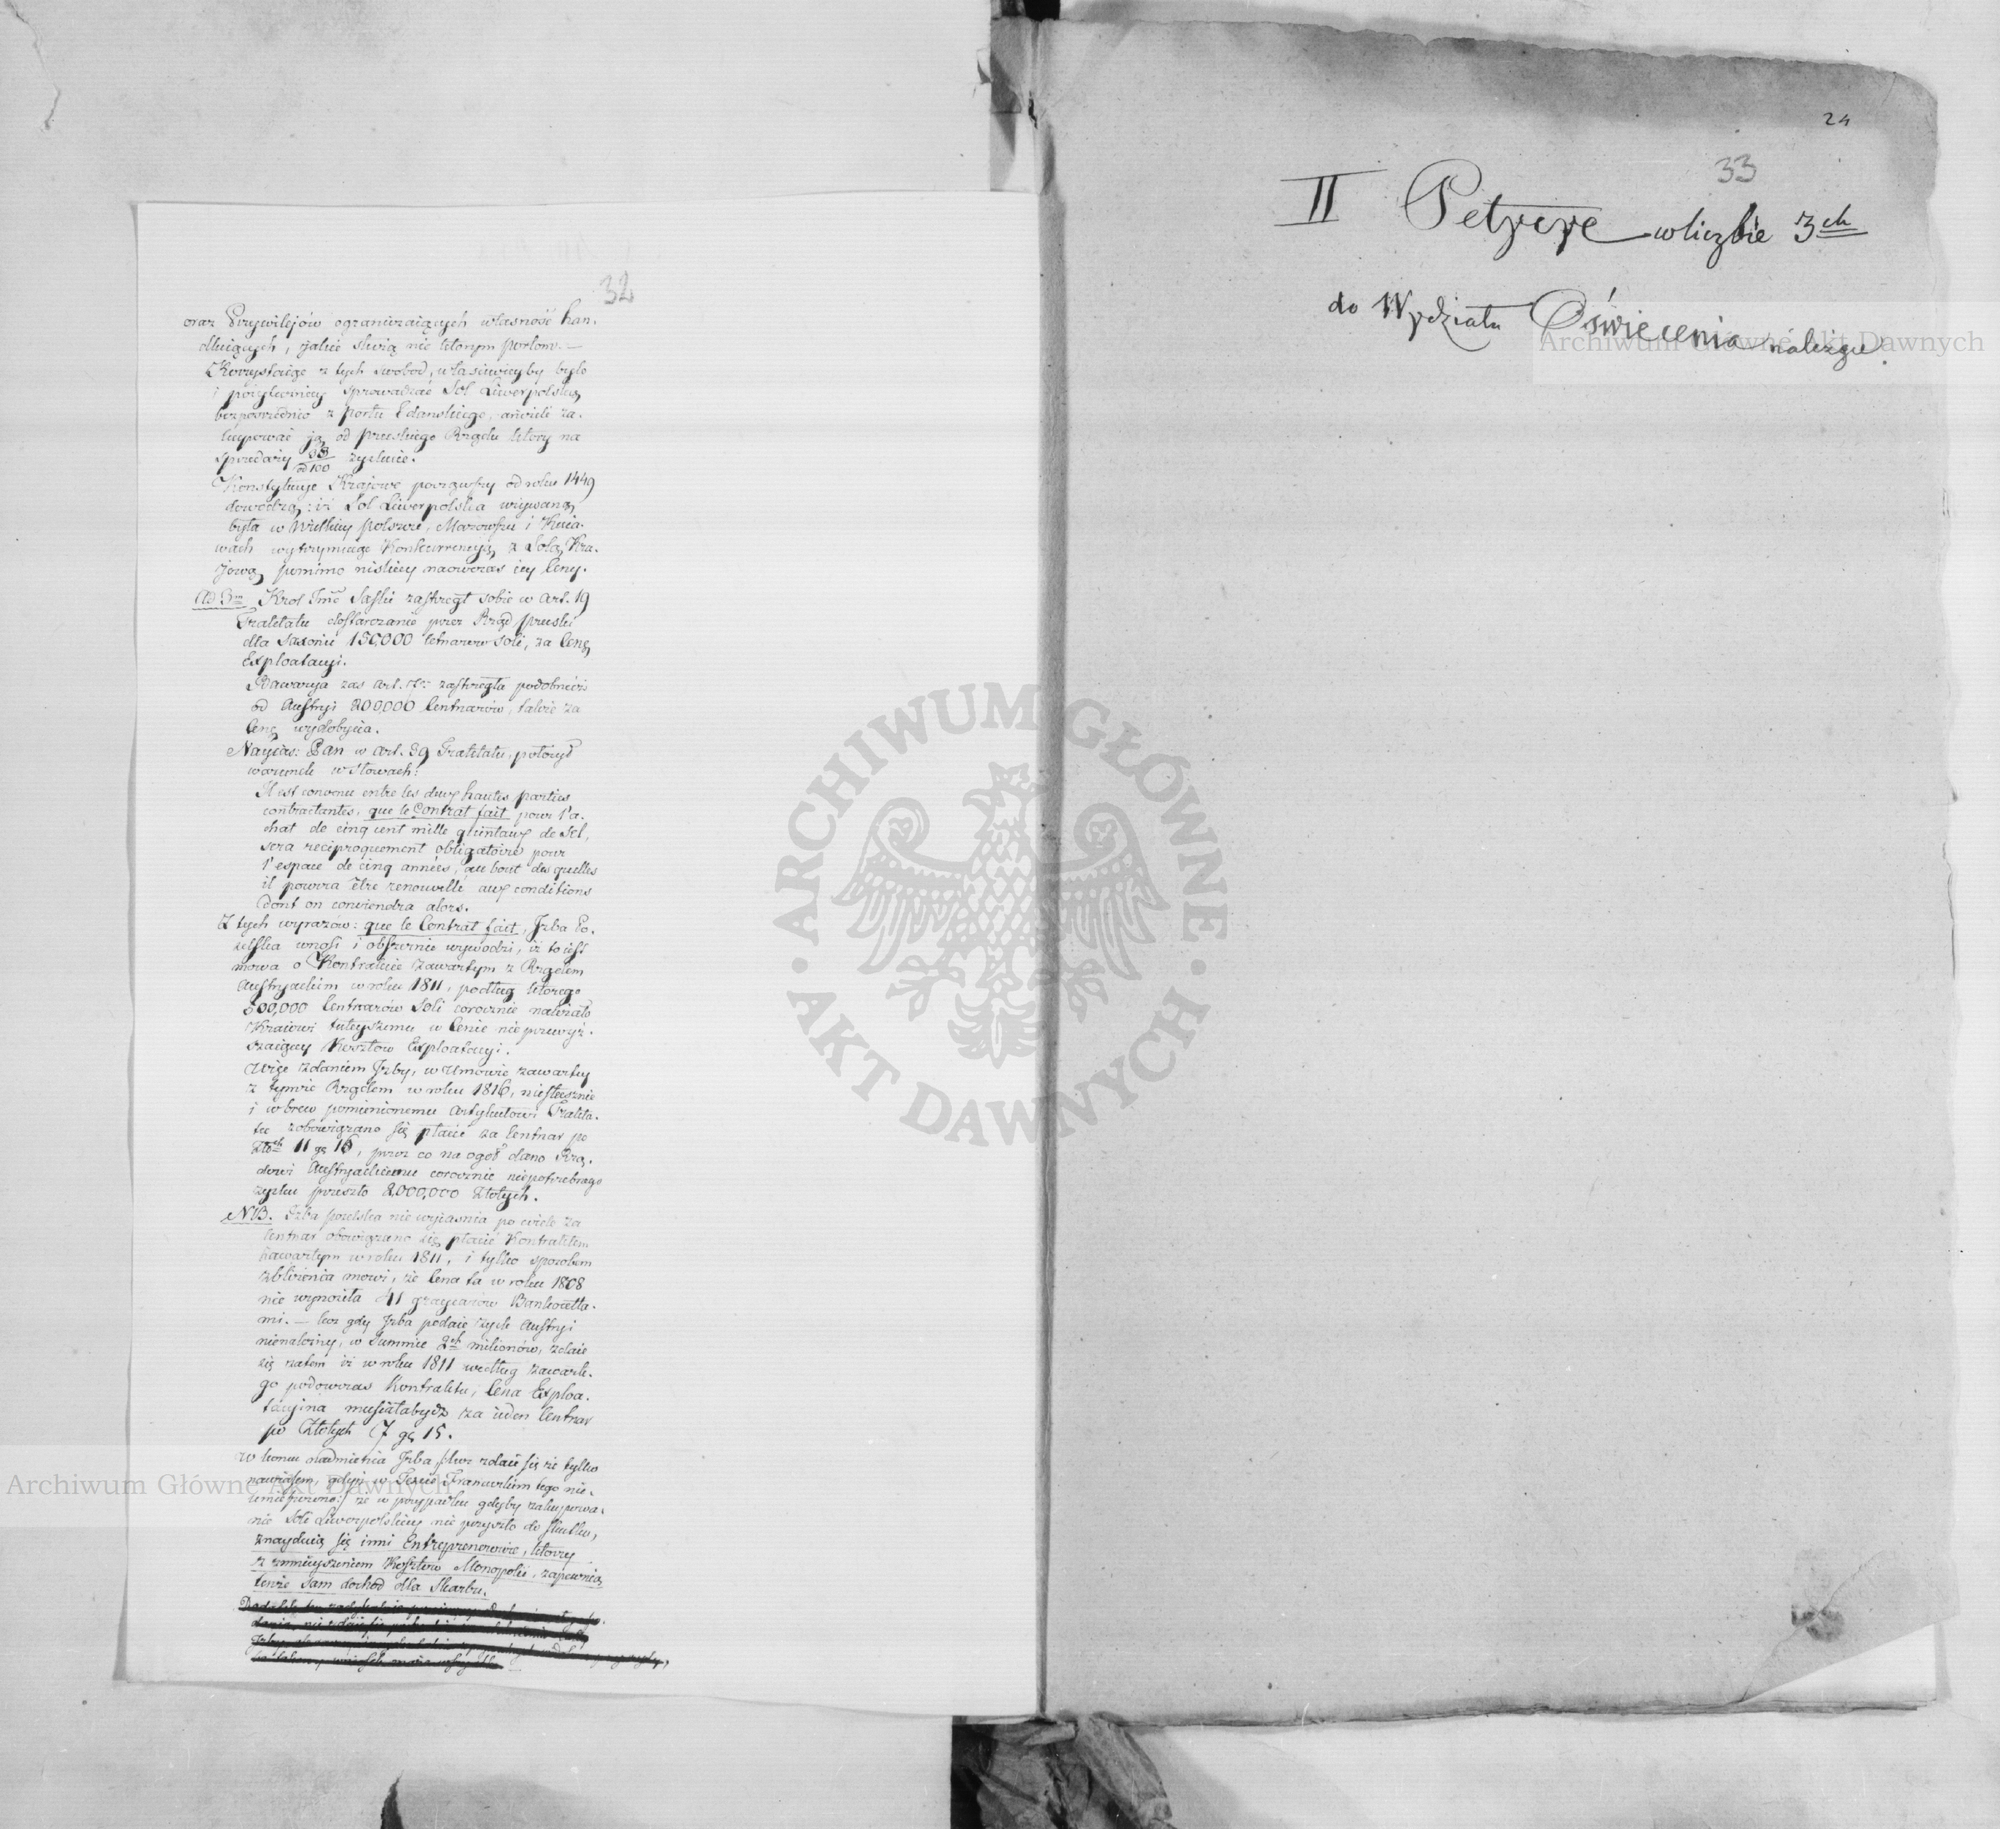 32
oraz Przywilejów ograniczaiących własność han-
dluiących, jakie służą nie którym portom. —
Korzystaiąc z tych swobod, właściwiey by było
i pożyteczniey sprowadzać Sól Liwerpolską
bezpośrednio z portu Gdanskiego, aniżeli za-
kupować ją od pruskiego Rządu który na
sprzedaży 33/od 100 zyskuie.
Konstytucye Krajowe począwszy od roku 1449
dowodzą: iż Sol Liwerpolska używaną
była w Wielkiey Polszcze, Mazowszu i Kuia-
wach wytrzymuiąc Konkurrencyią z Solą Kra-
jową, pomimo niskiey naowczas iey Ceny.
Ad 3m Krol Jmć Saski zastrzegł sobie w Art. 19
Traktatu dostarczanie przez Rząd pruski
dla Saxonii 150,000 cetnarów soli, za Cenę
Exploatacyi.
Bawarya zaś Art. 7. zastrzegła podobnież
od Austryi 200,000 Centnarów, także za
Cenę wydobycia.
Nayias: Pan w Art. 39 Traktatu, położył
warunek w słowach:
Il est convenu entre les deux hautes parties
contractantes, que le Contrat fait pour l'a-
chat de cinq cent mille quintaux de Sel,
sera reciproquement obligatoire pour
l'espace de cinq années, au bout des quelles
il pourra être renouvellé aux conditions
dont on conviendra alors.
Z tych wyrazów: que le Contrat fait, Izba Po-
selska wnosi i obszernie wywodzi, iż to iest
mowa o Kontrakcie zawartym z Rządem
Austryackim w roku 1811, podług którego
500,000 Centnarów Soli corocznie należało
Kraiowi tuteyszemu w Cenie nie przewyż-
szaiącey Kosztow Exploatacyi.
Więc zdaniem Izby, w Umowie zawartey
z tymże Rządem w roku 1816, niesłusznie
i wbrew pomienionemu Artykułowi Trakta-
tu zobowiązano się płacić za Centnar po
Złotch 11 gr 16, przez co na ogoł dano Rzą-
dowi Austryackiemu corocznie niepotrzebnego
zysku przeszło 2,000,000 Złotych.
NB. Izba poselska nie wyiasnia po wiele za
Centnar obowiązano się płacić Kontraktem
zawartym w roku 1811, i tylko sposobem
zbliżenia mowi, że Cena ta w roku 1808
nie wynosiła 41 graycarów Bankocetla-
mi. — lecz gdy Izba podaie zysk Austryi
nienależny, w Summie 2ch milionów, zdaie
się zatem iż w roku 1811 według zawarte-
go podówczas Kontraktu, Cena Exploa-
tacyina musiałabydź za ieden Centnar
po Złotych 7 gr 15.
W koncu nadmienia Izba, /: lecz zdaie się że tylko
nawiasem, gdyż w Texcie Francuzkim tego nie
umieszczono:/ że w przypadku gdyby zakupowa-
nie Soli Liwerpolskiey nie przyszło do skutku,
znayduią się inni Entreprenerowie, ktorzy
z zmnieyszeniem Kosztow Monopolii, zapewnią
tenże sam dochod dla Skarbu.
24
33
II Petycye w liczbie 3ch
do Wydziału Oświecenia należące.
Archiwum Główne Akt Dawnych
Archiwum Główne Akt Dawnych
ARCHIWUM GŁÓWNE · AKT DAWNYCH ·